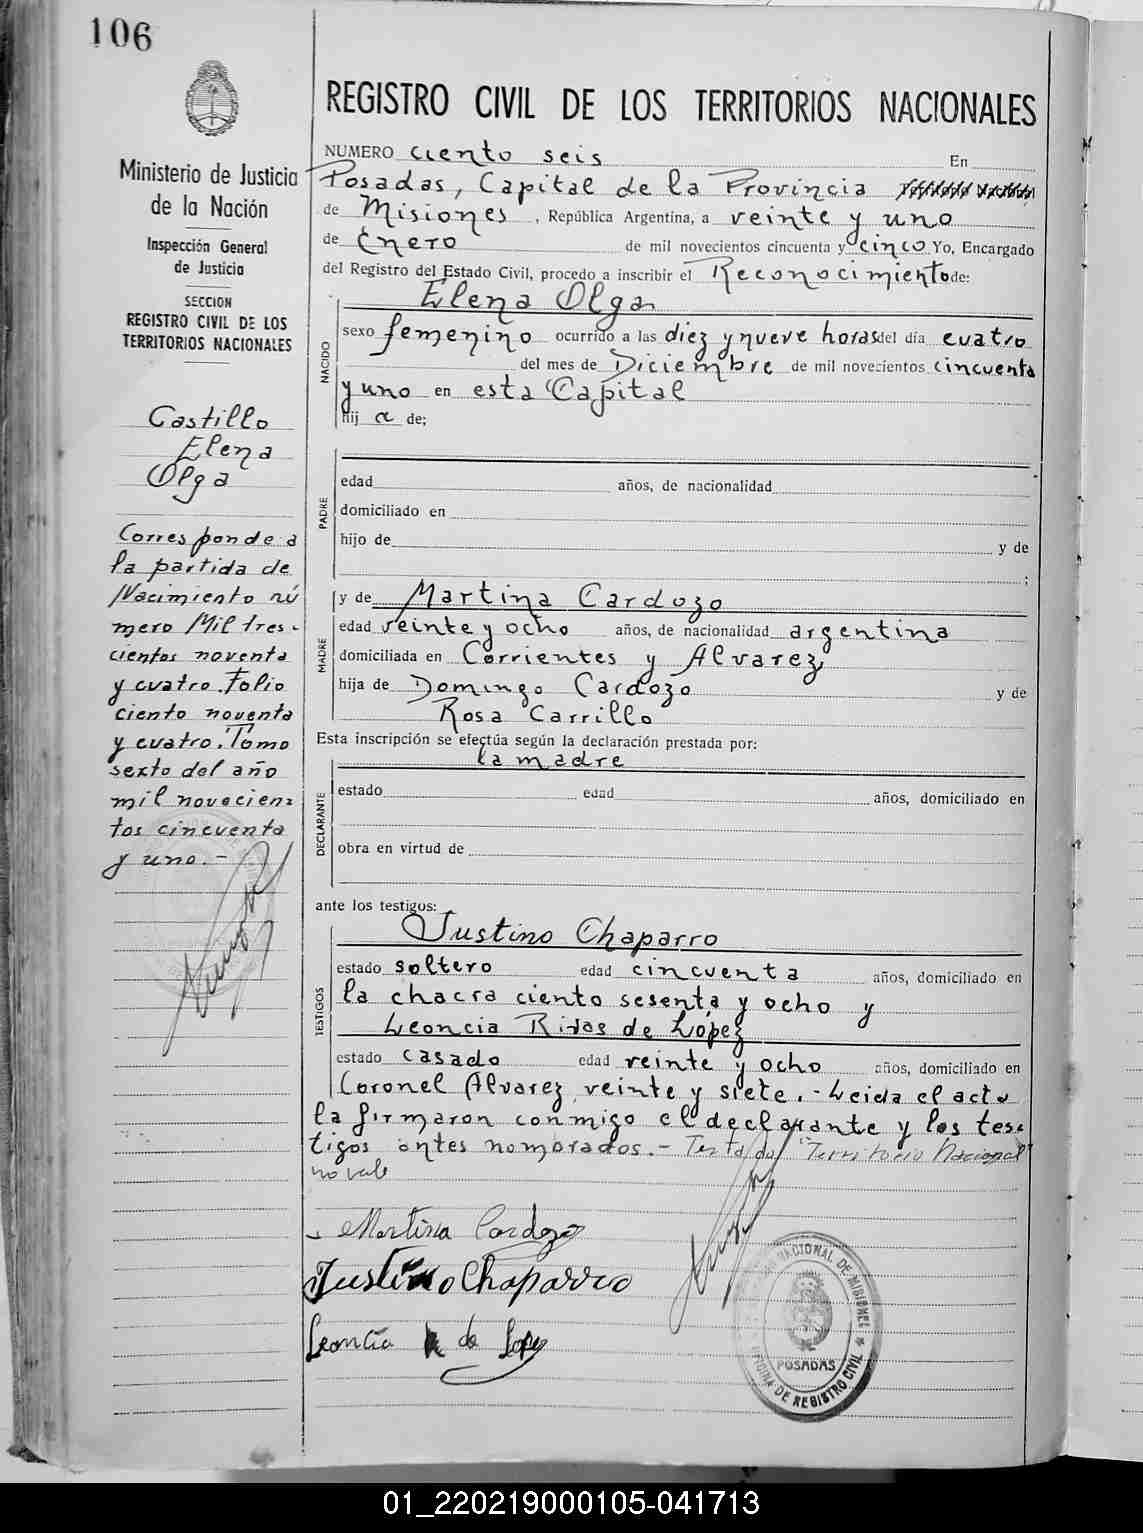 106
Ministerio de Justicia
de la Nación
Inspección General
de Justicia
SECCION
REGISTRO CIVIL DE LOS
TERRITORIOS NACIONALES
Castillo
Elena
Olga
Corresponde a
la partida de
Nacimiento nú
mero Mil tres-
cientos noventa
y cuatro. Folio
ciento noventa
y cuatro. Tomo
sexto del año
mil novecien=
tos cincuenta
y uno.-
REGISTRO CIVIL DE LOS TERRITORIOS NACIONALES
NUMERO ciento seis En
Posadas, Capital de la Provincia
de Misiones, República Argentina, a veinte y uno
de Enero de mil novecientos cincuenta y cinco Yo, Encargado
del Registro del Estado Civil, procedo a inscribir el Reconocimiento de:
NACIDO
Elena Olga
sexo femenino ocurrido a las diez y nueve horas del día cuatro
del mes de Diciembre de mil novecientos cincuenta
y uno en esta Capital
hij a de;
PADRE
edad años, de nacionalidad
domiciliado en
hijo de y de
;
MADRE
y de Martina Cardozo
edad veinte y ocho años, de nacionalidad argentina
domiciliada en Corrientes y Alvarez
hija de Domingo Cardozo y de
Rosa Carrillo
Esta inscripción se efectúa según la declaración prestada por:
DECLARANTE
la madre
estado edad años, domiciliado en
obra en virtud de
ante los testigos:
TESTIGOS
Justino Chaparro
estado soltero edad cincuenta años, domiciliado en
la chacra ciento sesenta y ocho y
Leoncia Rivas de López
estado casado edad veinte y ocho años, domiciliado en
Coronel Alvarez veinte y siete.- Leida el acta
la firmaron conmigo el declarante y los tes=
tigos antes nombrados.- Testado "Territorio Nacional"
no vale
Martina Cardozo
Justino Chaparro
Leoncia R de Lopez
NACIONAL DE MISIONES
POSADAS
OFICINA DE REGISTRO CIVIL
01_220219000105-041713